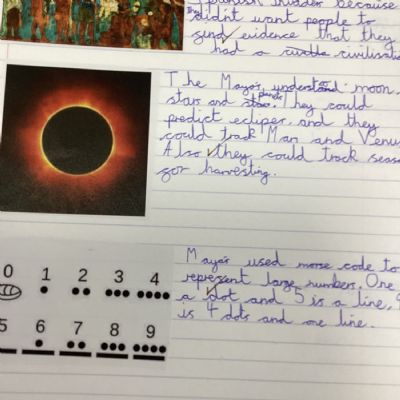 Spanish invader because
they didn't want people to
find evidence that they
had a civilisation
The Maya's understand moon,
stars and planets. They could
predict eclipes, and they
could track Mars and Venus
Also they could track seas
for harvesting.
Maya's used morse code to
represent large numbers. One
a dot and 5 is a line, 9
is 4 dots and one line.
0 1 2 3 4
5 6 7 8 9